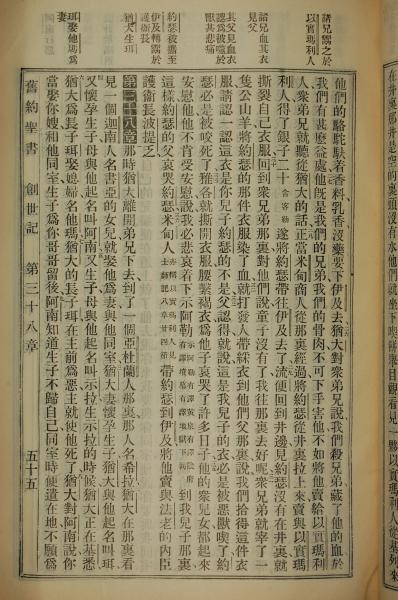 在井裏那井是空的裏頭沒有水他們就坐下喫餅舉目觀看見一夥以實瑪利人從基列來
諸兄鬻之於
以實瑪利人
諸兄血其衣
見父
其父見血衣
認爲被噬於
獸其悲痛
約瑟被鬻至
伊及轉鬻於
護衛長
猶大生珥
珥娶他瑪爲
妻
他們的駱駝馱着香料乳香沒藥要下伊及去猶大對衆弟兄說我們殺兄弟藏了他的血於
我們有甚麼益處他旣是我們的兄弟我們的骨肉不可下手害他不如將他賣給以實瑪利
人衆弟兄就聽從猶大的話正當米甸商人從那裏經過將約瑟從井裏拉上來賣與以實瑪
利人得了銀子二十舍客勒遂將約瑟帶往伊及去了流便回到井邊見約瑟沒有在井裏就
撕裂自己衣服回到衆兄弟那裏對他們說童子沒有了我往那裏去好呢衆兄弟就宰了一
隻公山羊將約瑟的那件衣服染了血就打發人帶綵衣到他們父那裏說我們拾得這件衣
服請認一認這衣是你兒子約瑟的不是父認得就說這是我兒子的衣必是被惡獸喫了約
瑟必是被咬死了雅各就撕開衣服腰繫褐衣爲他子哀哭了許多日子他的衆兒女都起來
安慰他他不肯受安慰說我必悲哀着下示阿勒示阿勒有譯黃泉有譯陰府有譯墳墓有譯地獄下同到我兒子那裏
這樣約瑟的父哀哭約瑟米甸人亦稱以實瑪利人見士師記八章廿四節帶約瑟到伊及將他賣與法老的內臣
護衛長波提乏
第三十八章那時猶大離開弟兄下去到了一個亞杜蘭人那裏那人名希拉猶大在那裏看
見一個迦南人名書亞的女兒就娶他爲妻與他同室猶大妻懷孕生子猶大與他起名叫珥
又懷孕生子母與他起名叫阿南又生子母與他起名叫示拉生示拉的時候猶大正在基悉
猶大爲長子珥娶媳婦名他瑪猶大的長子珥在主前爲惡主就使他死了猶大對阿南說你
當娶你嫂和他同室生子爲你哥哥留後阿南知道生子不歸自己同室時便遺在地不願爲
舊約聖書 創世記 第三十八章 五十五